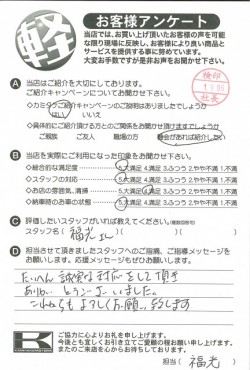 軽
お客様アンケート
当店では、お買い上げ頂いたお客様の声を可能
な限り現場に反映し、お客様により良い商品と
サービスを提供する事に努めています。
大変お手数ですが是非お声をお聞かせ下さい。
検印
社長
A 当店はご紹介を大切にしております。
ご紹介キャンペーンについてお聞かせ下さい。
◇カミタケご紹介キャンペーンのご説明はありましたでしょうか
はい いいえ
◇具体的にご紹介頂ける方とのご関係をお聞かせ頂けますでしょうか
ご親族 ご友人 職場の方 機会があれば紹介したい
B 当店を実際にご利用になった印象をお聞かせ下さい。
◇総合的な満足度 5.大満足 4.満足 3.ふつう 2.やや不満 1.不満
◇スタッフの対応 5.大満足 4.満足 3.ふつう 2.やや不満 1.不満
◇お店の雰囲気、清掃 5.大満足 4.満足 3.ふつう 2.やや不満 1.不満
◇納車時のお車の状態 5.大満足 4.満足 3.ふつう 2.やや不満 1.不満
C 評価したいスタッフがいれば教えてください。(複数回答可)
スタッフ名( 福光 )
D 担当させて頂きましたスタッフへのご指摘、ご指導メッセージを
お願いします。応援メッセージもぜひお聞かせ下さい。
たいへん 誠実な対応をして頂き
ありがとうございました。
これからもよろしくお願い致します
K
ご協力に心よりお礼を申し上げます。
今後とも宜しくお引き立てご愛顧の程お願い申し上げます。
またのご来店を心からお待ちしております。
担当( 福光 )